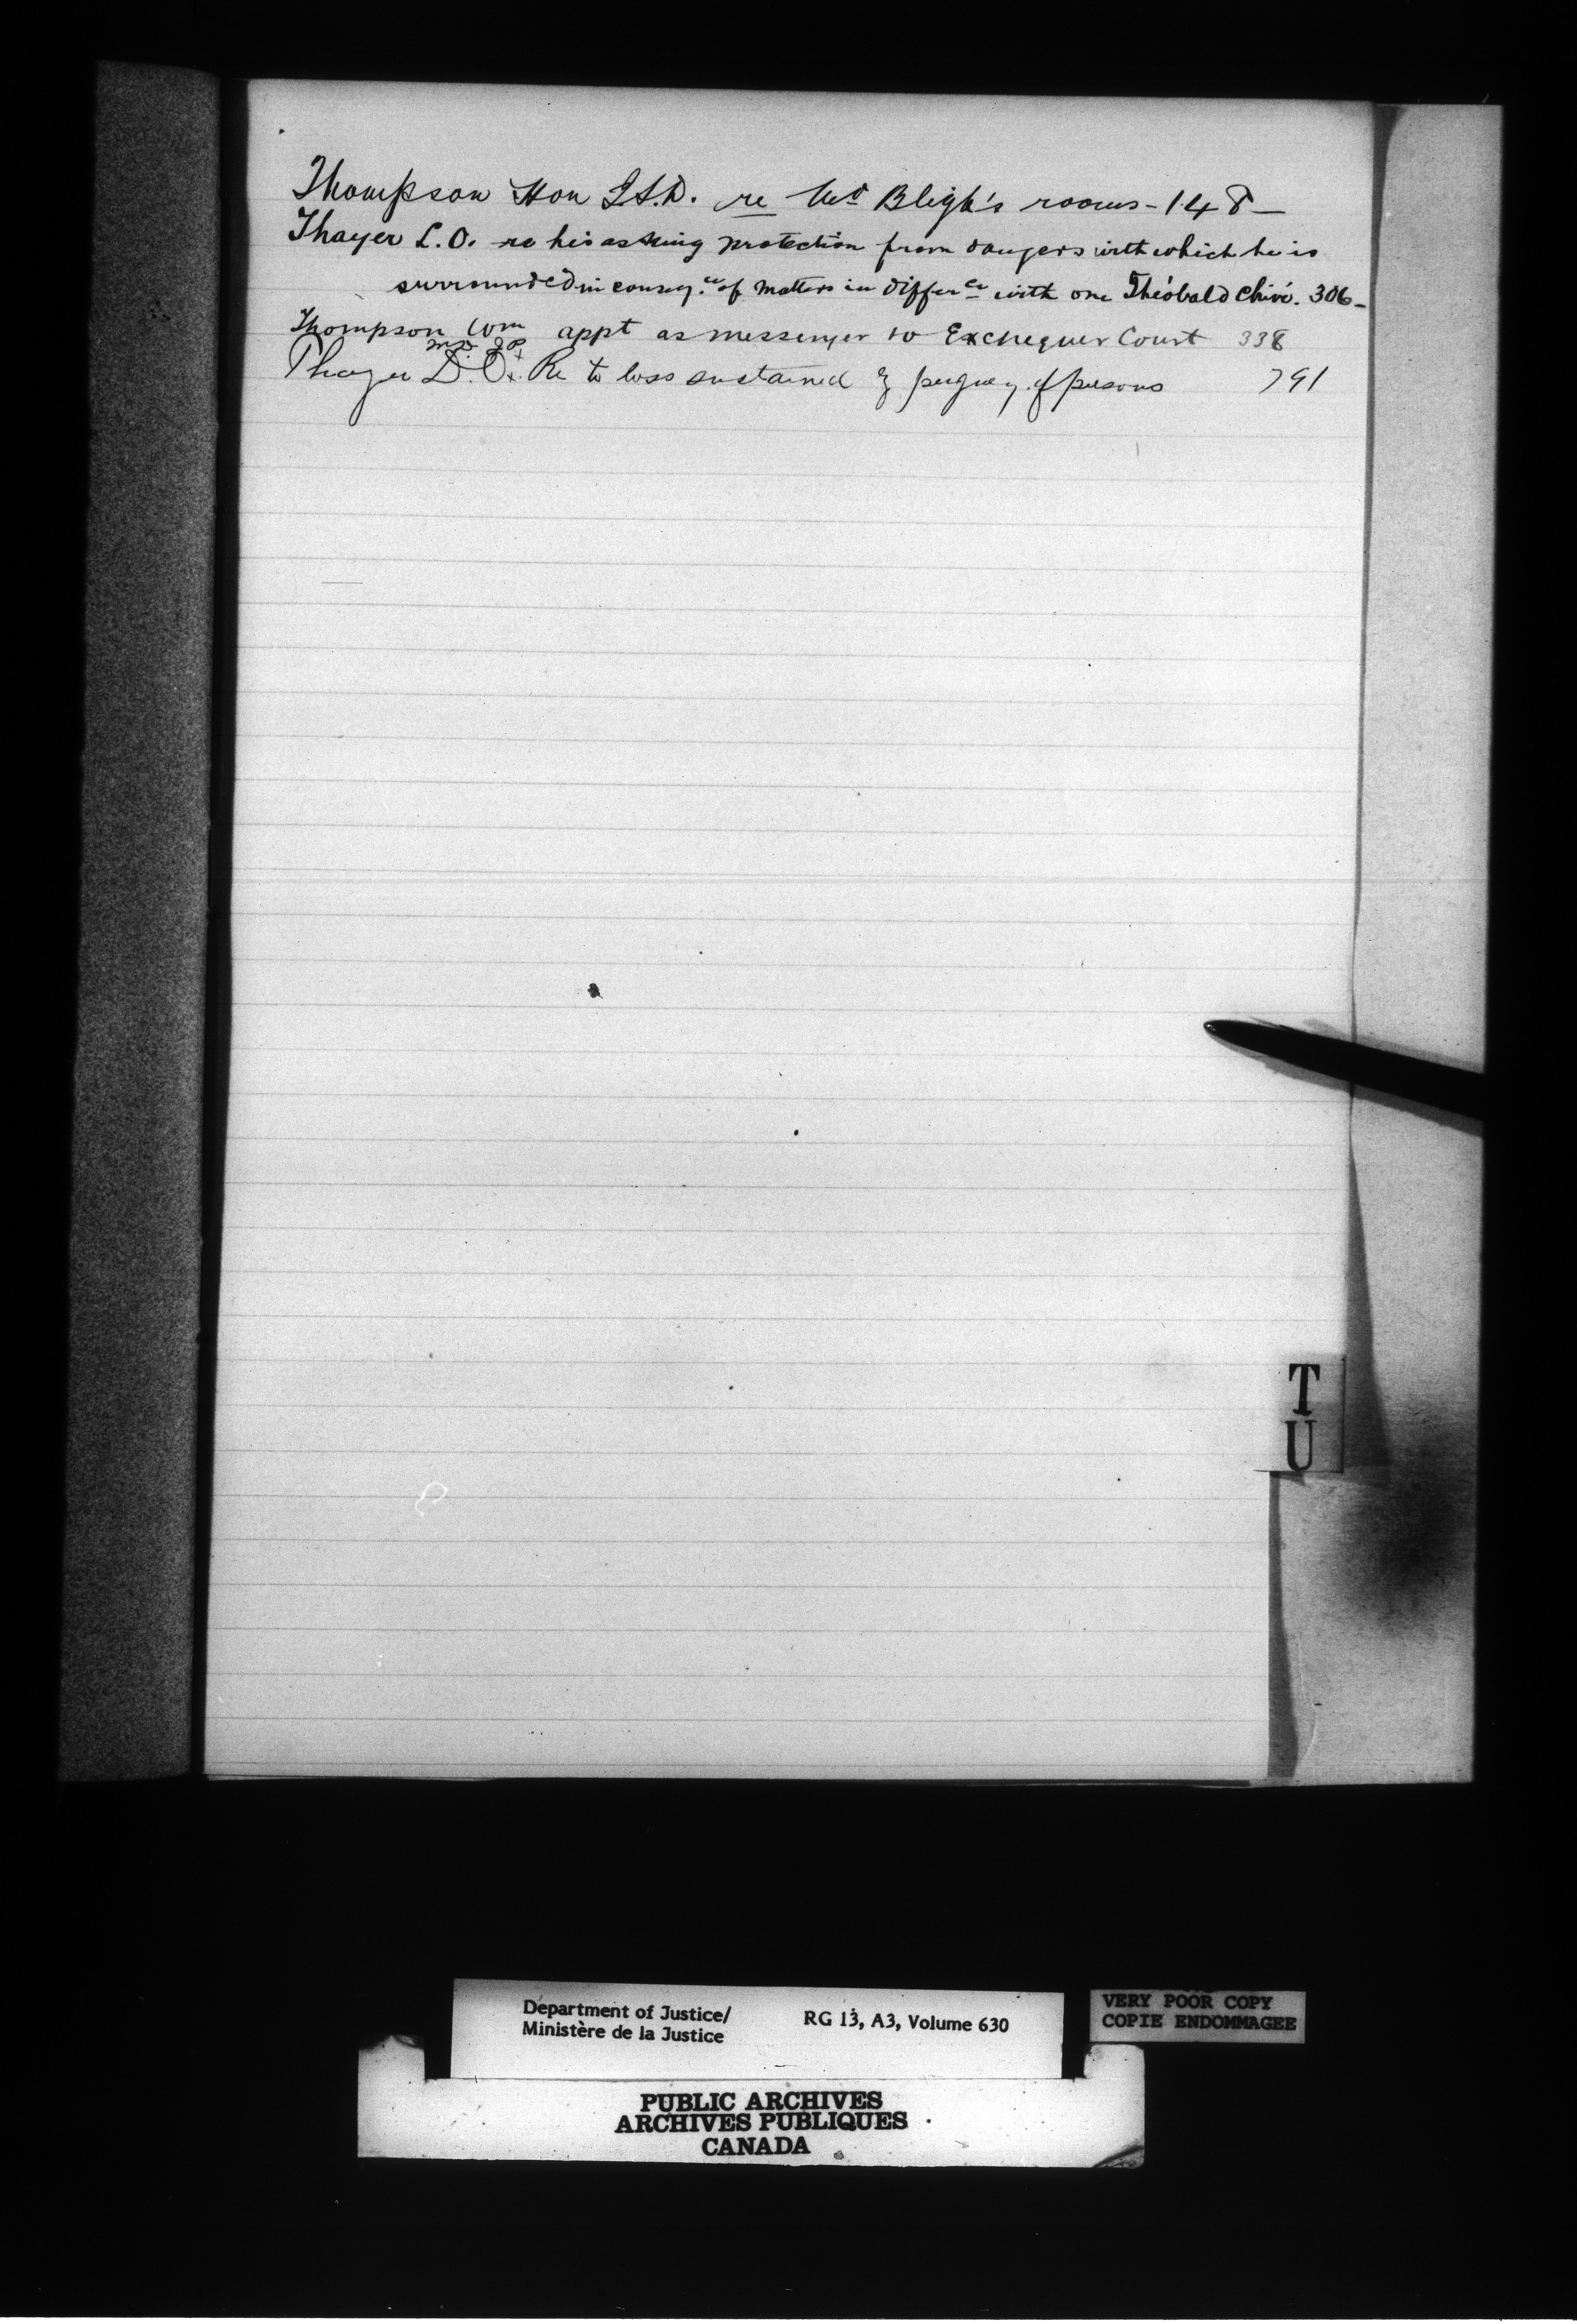 Thompson Hon J.S.D. re Mrs Bligh's rooms - 148 -
Thayer L.O. re his asking protection from dangers with which he is
surrounded in conseq.ce of matters in differce with one Théobald Chivé. 306 -
Thompson Wm appt as messenger to Exchequer Court 338
Thayer L.O. Re to loss sustained by perjury of persons 791
T
U
Department of Justice/
Ministère de la Justice
RG 13, A3, Volume 630
VERY POOR COPY
COPIE ENDOMMAGEE
PUBLIC ARCHIVES
ARCHIVES PUBLIQUES
CANADA